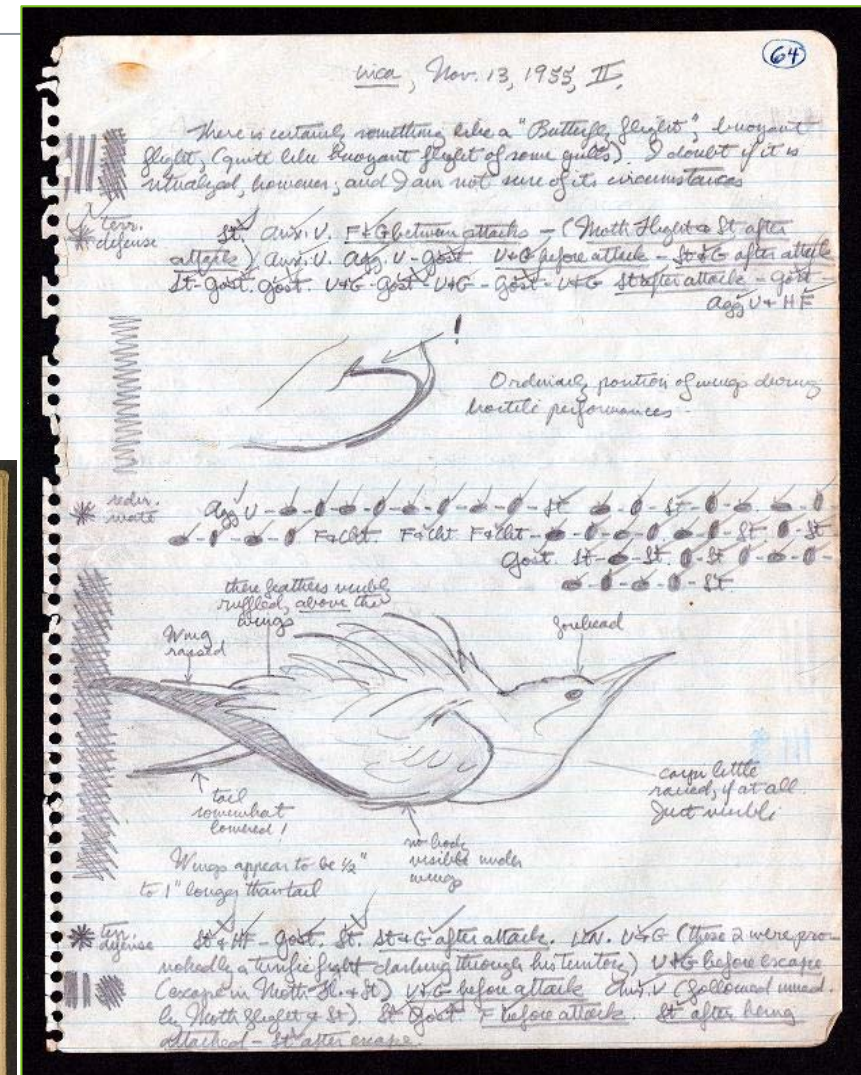 64
Nov. 13, 1955, II.
There is certainly something like a "Butterfly flight", buoyant
flight, (quite like buoyant flight of some gulls). I doubt if it is
ritualized, however, and I am not sure of its circumstances
terr.
defense
St. Anx. U. F+G between attacks - (Moth Flight & St after
attack) Anx. U. Agg. U - Gost U+G before attack - St+G after attack
St - Gost. Gost. U+G - Gost - U+G - Gost - U+G St after attack - Gost -
Agg U + HF
!
Ordinary position of wings during
hostile performances -
mate
Agg U - St St
F+Cht. F+Cht F+Cht St. St
Gost. St St. St
St.
these feathers visibly
ruffled, above the
wings
Wing
raised
forehead
tail
somewhat
lowered!
no body
visible under
wings
little
raised, if at all.
Just visible
Wings appear to be 1/2"
to 1" longer than tail
terr.
defense
St + HF - Gost. St. St+G after attack. U+G (these 2 were
by a terrific fright dashing through his territory) U+G before escape
(escape in Moth Fl. & St) U+G before attack Anx. U (followed
by Moth Flight & St). St Gost F before attack. St after being
attacked - St after escape.